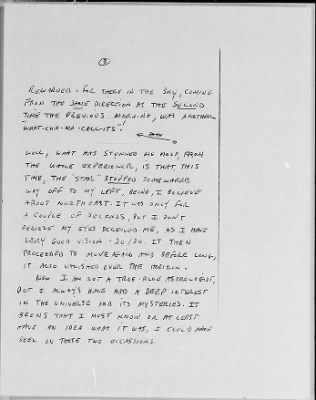 ③
REWARDED - FOR THERE IN THE SKY, COMING
FROM THE SAME DIRECTION AS THE SECOND
TIME THE PREVIOUS MORNING, WAS ANOTHER
"WHAT-CHA-MA-CALL-ITS"!
WELL, WHAT HAS STUNNED ME MOST, FROM
THE WHOLE EXPERIENCE, IS THAT THIS
TIME, THE "STAR" STOPPED SOMEWHERE
WAY OFF TO MY LEFT, BEING, I BELIEVE
ABOUT NORTHEAST. IT WAS ONLY FOR
A COUPLE OF SECONDS, BUT I DON'T
BELIEVE MY EYES DECEIVED ME, AS I HAVE
VERY GOOD VISION - 20/20. IT THEN
PROCEEDED TO MOVE AGAIN AND BEFORE LONG,
IT ALSO VANISHED OVER THE HORIZON.
NOW I AM NOT A TRUE-BLUE ASTROLOGIST,
BUT I ALWAYS HAVE HAD A DEEP INTEREST
IN THE UNIVERSE AND ITS MYSTERIES. IT
SEEMS THAT I MUST KNOW OR AT LEAST
HAVE AN IDEA WHAT IT WAS, I COULD HAVE
SEEN ON THESE TWO OCCASSIONS.